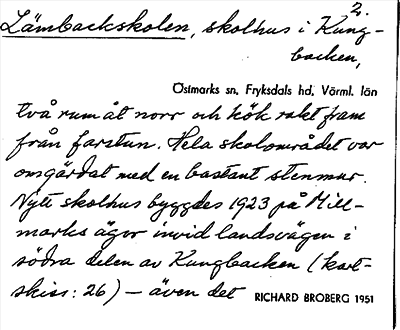 2.
Lämbackskolen, skolhus i Kung-
backen,
Östmarks sn, Fryksdals hd, Värml. län
två rum åt norr och kök rakt fram
från farstun. Hela skolområdet var
omgärdat med en bastant stenmur.
Nytt skolhus byggdes 1923 på Mill-
marks ägor invid landsvägen i
södra delen av Kungbacken (kart-
skiss: 26) – även det RICHARD BROBERG 1951